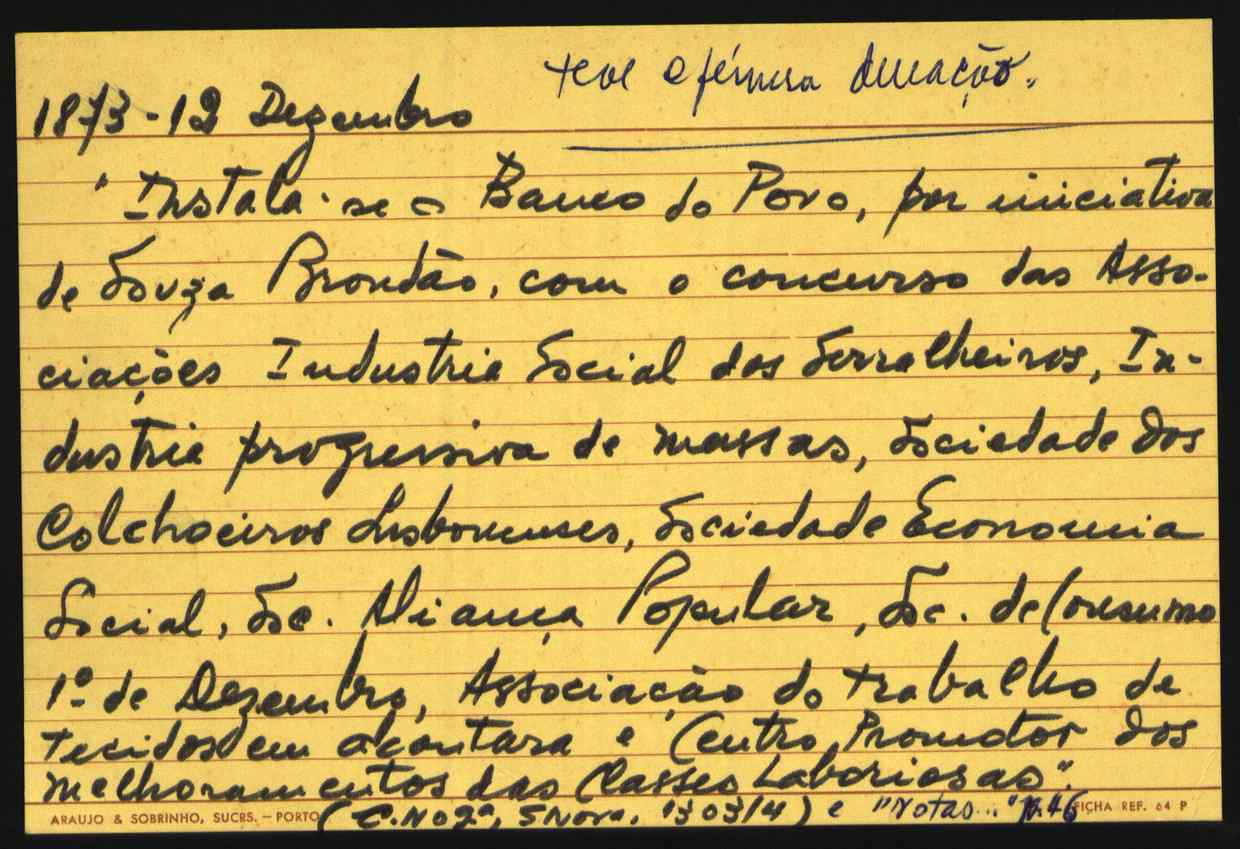 teve efémera duração.
1873-12 Dezembro
"Instala-se o Banco do Povo, por iniciativa
de Souza Brandão, com o concurso das Asso-
ciações Industria Social dos Serralheiros, In-
dustria progressiva de massas, Sociedade dos
Colchoeiros Lisbonenses, Sociedade Economia
Social, Soc. Aliança Popular, Soc. de Consumo
1º de Dezembro, Associação do trabalho de
tecidos em alcantara e Centro Promotor dos
melhoramentos das Classes Laboriosas".
ARAUJO & SOBRINHO, SUCRS. - PORTO ( e "Notas..." p.46 FICHA REF. 64 P